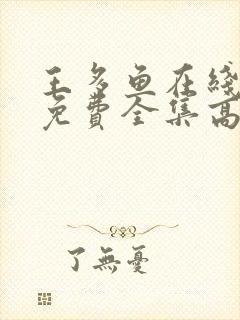 王多鱼在线
免費全集高
了無憂